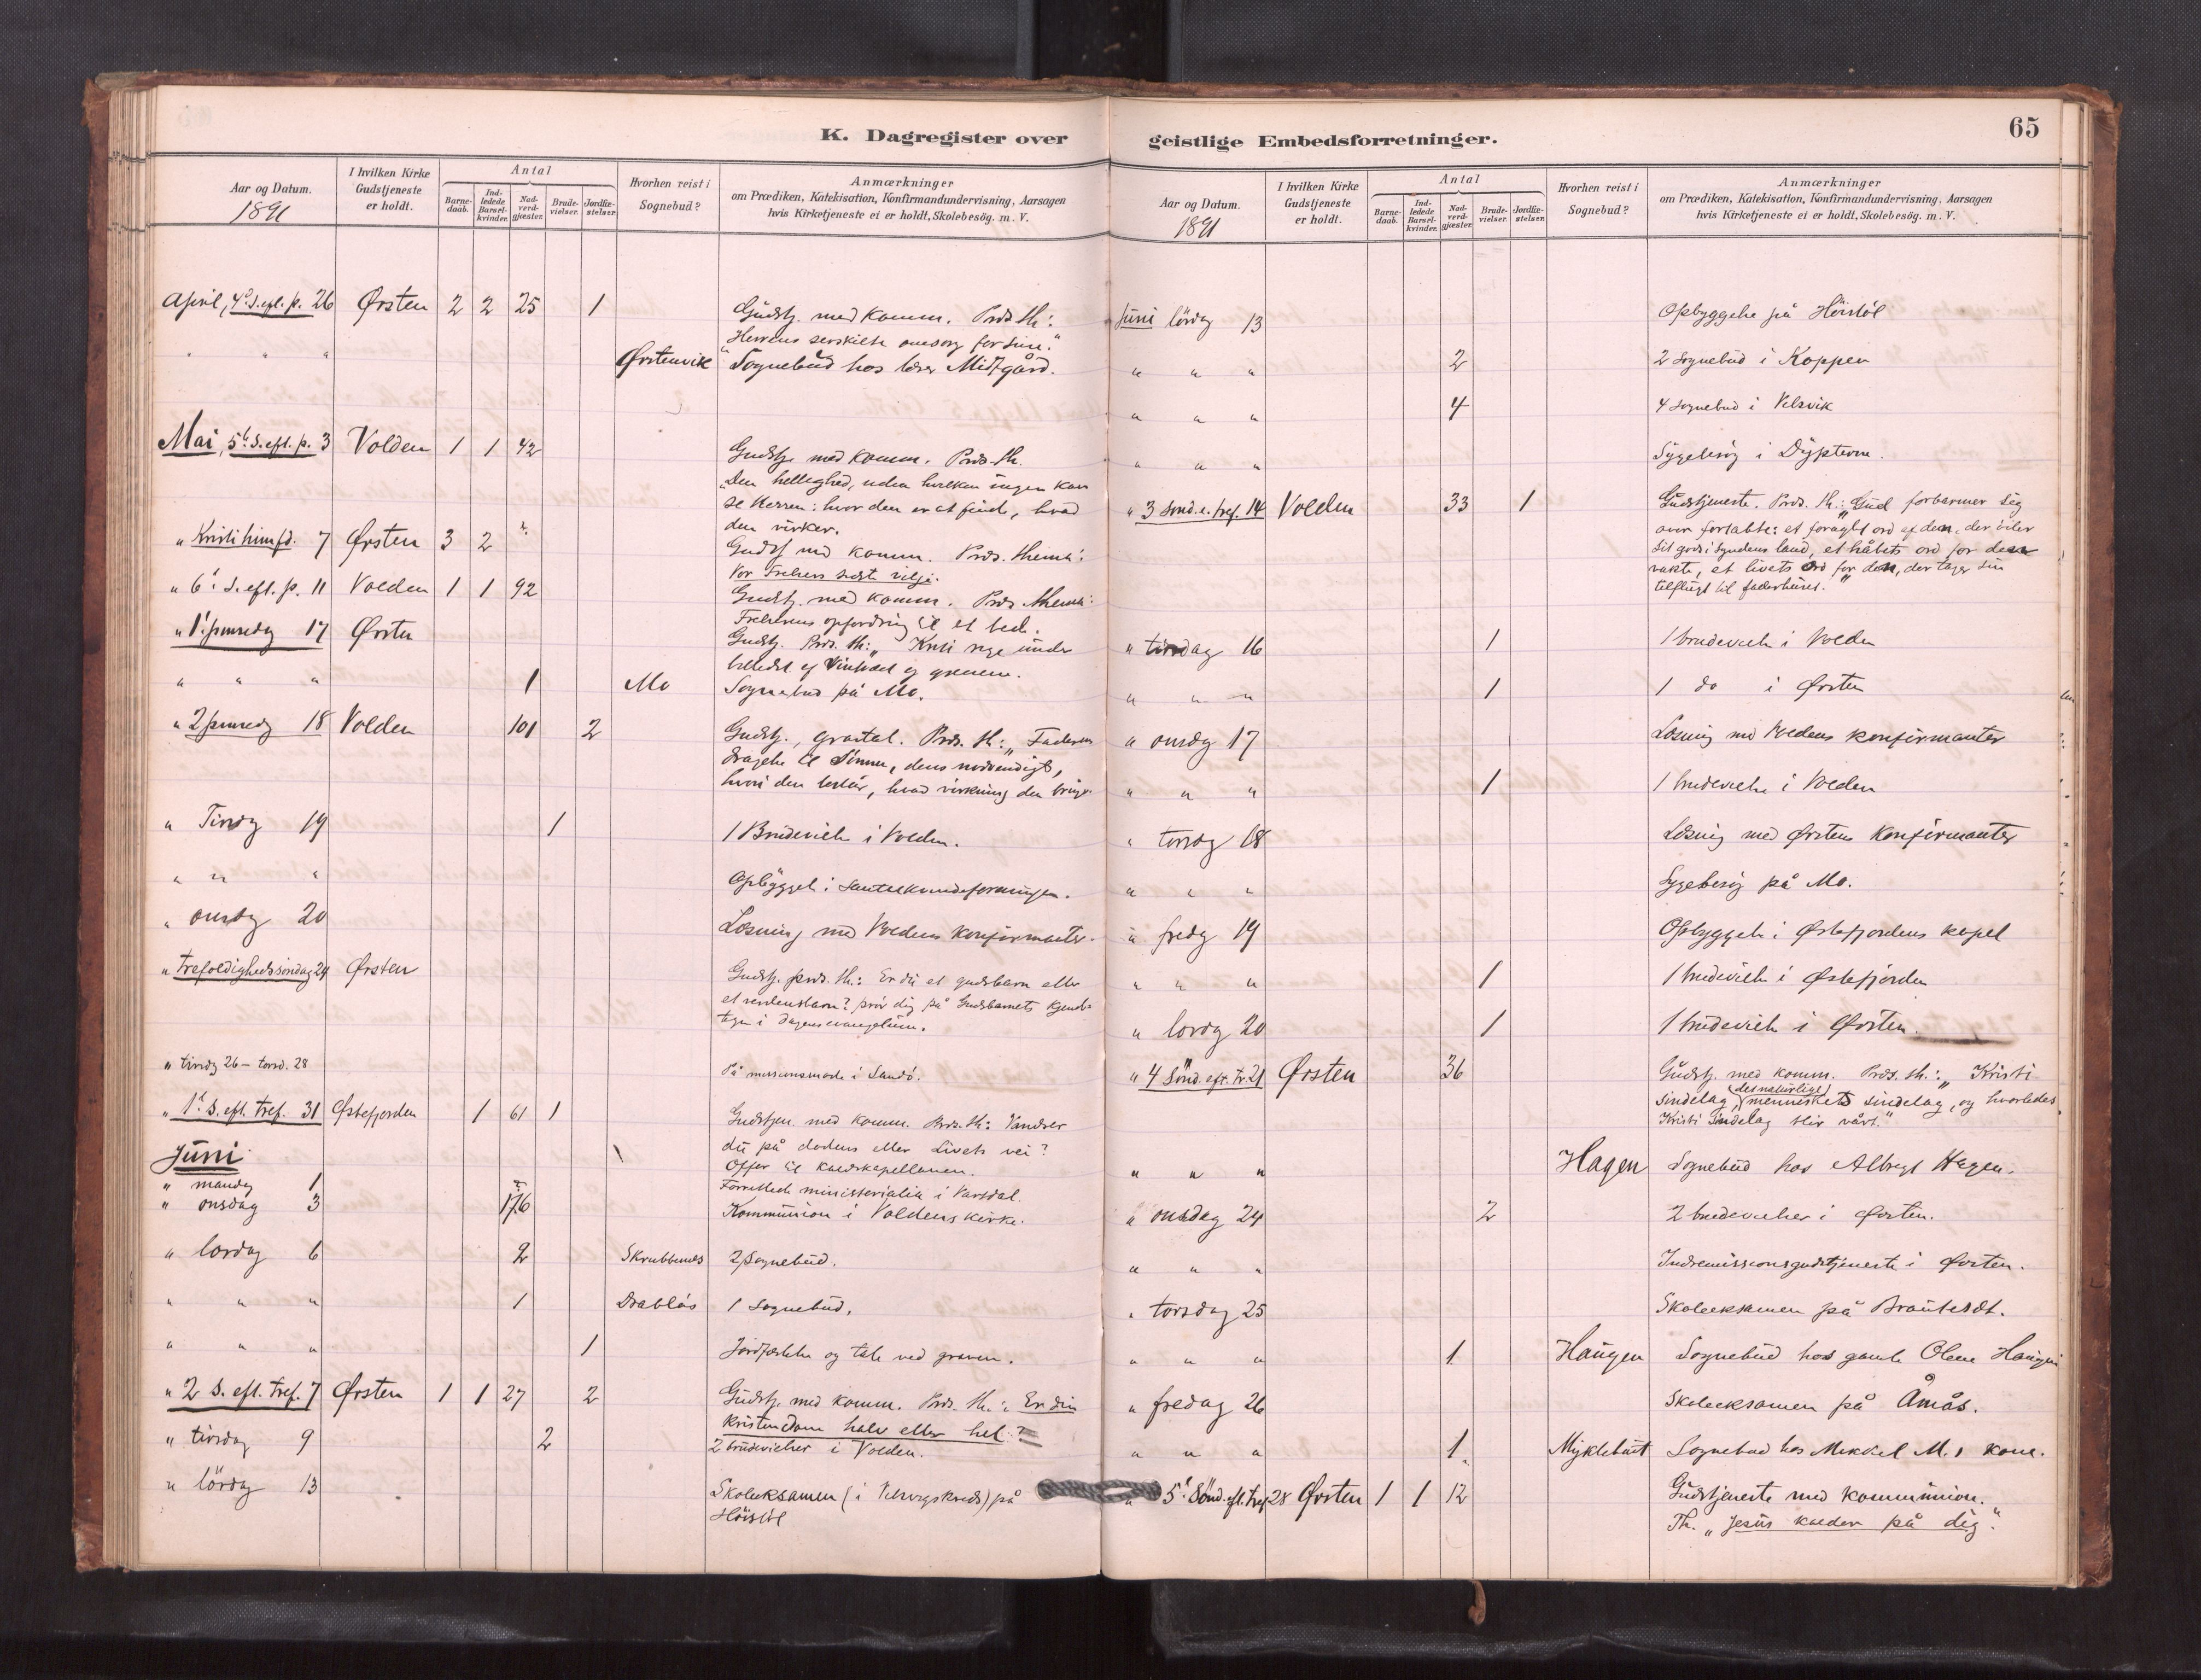 65
K. Dagregister over
geistlige Embedsforretninger.
Aar og Datum.
1891
I hvilken Kirke
Gudstjeneste
er holdt.
Antal
Barne-
daab.
Ind-
ledede
Barsel-
kvinder.
Nad-
verd-
gjæster.
Brude-
vielser.
Jordfæ-
stelser.
Hvorhen reist i
Sognebud?
Anmærkninger
om Prædiken, Katekisation, Konfirmandundervisning, Aarsagen
hvis Kirketjeneste ei er holdt, Skolebesög. m. V.
April, 4de S. eft. p. 26 Ørsten 2 2 25 1 Gudstj. med komm. Præd. th:
Herrens omsorg for sine."
" " " Ørstenvik Sognebud hos lærer Midtgård.
Mai, 5te S. eft. p. 3 Volden 1 1 42 Gudstj. med komm. Præd. th.
"Den hellighed, uden hvilken ingen kan
se Herren: hvor den er at finde, hvad
den virker.
" Kristi himfd. 7 Ørsten 3 2 Gudstj med komm. Præd. thema:
Vor Frelsers sidste vilje.
" 6te S. eft. p. 11 Volden 1 1 92 Gudstj. med komm. Præd. thema:
Frelserens opfordring til et bede.
" 1ste pinsedg 17 Ørsten Gudstj. Præd. th: "Kristi rige under
billedet af Vintræet og grenene.
" " " 1 Mo Sognebud på Mo.
" 2 pinsedg 18 Volden 101 2 Gudstj., gravtal. Præd. th: "Faderens
dragelse til Sönnen, dens nødvendigh,
hvori den består, hvad virkning den bringer
" Tirsdg 19 1 1 Brudevielse i Volden.
" " " Opbyggel. i
" onsdg 20 Læsning med Voldens konfirmanter.
" Trefoldighedssöndag 24 Ørsten Gudstj. præd. th: Er du et gudsbarn eller
et verdensbarn? prøv dig på Gudsbarnets kjende-
tegn i dagens evangelium.
" tirsdg 26 – torsd. 28 På missionsmøde i Sandö.
" 1ste S. eft. Tref. 31 Østefjorden 1 61 1 Gudstjen. med komm. Præd. th: Vandrer
du på dødens eller Livets vei?
Offer til
Juni
" mandag 1 Forrettede ministerialia i Vartdal.
" onsdag 3 176 Kommunion i Voldens kirke.
" lørdag 6 2 Skrubbenes 2 Sognebud.
" " " 1 Drabløs 1 Sognebud.
" " " 1 Jordfæstelse og tale ved graven.
" 2 S. eft. Tref. 7 Ørsten 1 1 27 2 Gudstj. med komm. Præd. th.: Er din
kristendom halv eller hel?
" tirsdag 9 2 2 brudevielser i Volden.
" lördag 13 Skoleeksamen (i kreds) på
Höistöl
Aar og Datum.
1891
I hvilken Kirke
Gudstjeneste
er holdt.
Antal
Barne-
daab.
Ind-
ledede
Barsel-
kvinder.
Nad-
verd-
gjæster.
Brude-
vielser.
Jordfæ-
stelser.
Hvorhen reist i
Sognebud?
Anmærkninger
om Prædiken, Katekisation, Konfirmandundervisning, Aarsagen
hvis Kirketjeneste ei er holdt, Skolebesög. m. V.
Juni lördag 13 Opbyggelse på Höistöl
" " " 2 2 Sognebud i Koppen
" " " 4 4 Sognebud i Velsvik
" " " Sygebesög i
" 3 Sønd. e. tref. 14 Volden 33 1 Gudstjeneste. Præd. th.: "Gud forbarmer sig
over fortabte: et ord af den, der öder
sit gods i syndens land, et håbets ord for den
vakte, et livets ord for den, der tager sin
tilflugt til faderhuset."
" tirsdag 16 1 1 brudevielse i Volden
" " " 1 1 do i Ørsten
" onsdg 17 Læsning med Voldens konfirmanter
" " " 1 1 brudevielse i Volden
" torsdg 18 Læsning med Ørstens konfirmanter
" " " Sygebesög på Mo.
" fredg 19 Opbyggelse i Østefjordens kapel
" " " 1 1 brudevielse i Østefjorden
" lördg 20 1 1 brudevielse i Ørsten.
" 4 Sønd. eft. tr. 21 Ørsten 36 Gudstj. med komm. Præd. th.: "Kristi
sindelag, (det naturlige) menneskets sindelag, og hvorledes
Kristi Sindelag blir vårt."
" " " Hagen Sognebud hos Albregt Hagen.
" onsdag 24 2 2 brudevielser i Ørsten.
" " " Indremissionsgudstjeneste i Ørsten.
" torsdag 25 Skoleeksamen på
" " " 1 Haugen Sognebud hos gamle Olene Haugen
" fredag 26 Skoleeksamen på Åmås.
" " " 1 Myklebust Sognebud hos Mikkel M.s kone.
" 5te Sønd. eft. tref 28 Ørsten 1 1 12 Gudstjeneste med kommunion.
Th. "Jesus kalder på dig."